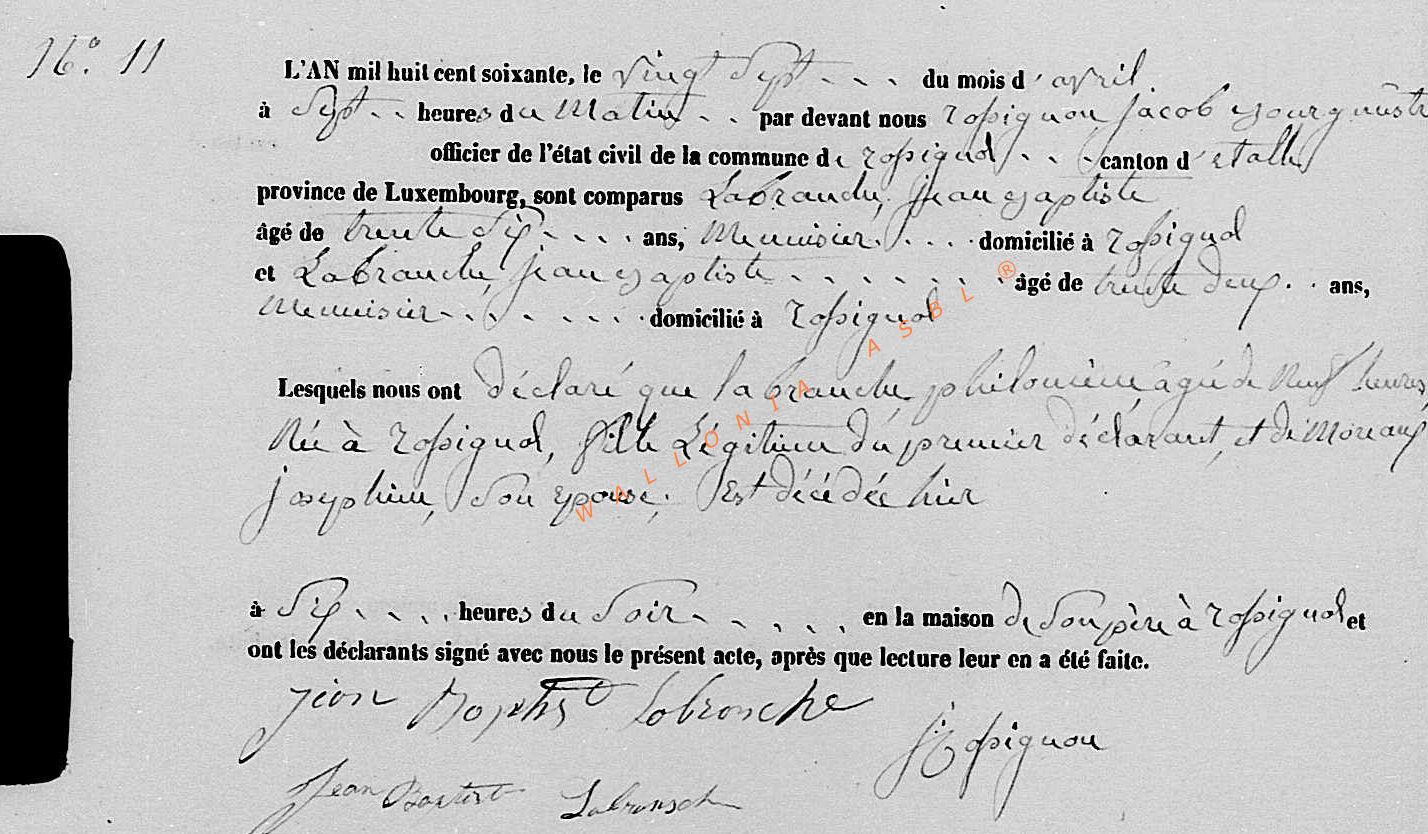 N.° 11
L'AN mil huit cent soixante, le vingt Sept du mois d'avril
à Sept heures du Matin par devant nous rossignon jacob Bourgmestre
officier de l'état civil de la commune de rossignol canton d'etalle
province de Luxembourg, sont comparus Labranche, jean Baptiste
âgé de trente Six ans, Menuisier domicilié à rossignol
et Labranche, jean Baptiste âgé de trente deux ans,
Menuisier domicilié à rossignol
Lesquels nous ont déclaré que labranche philomène, agée de Neuf heures,
Née à rossignol, fille Légitime du premier déclarant, et de Moreaux
josephine, Son epouse, Est décédée hier
à Six heures du Soir en la maison de Son père à rossignol et
ont les déclarants signé avec nous le présent acte, après que lecture leur en a été faite.
jean Baptist Labranche
j Rossignon
Jean Baptist Labransch
WALLONIA ASBL ®